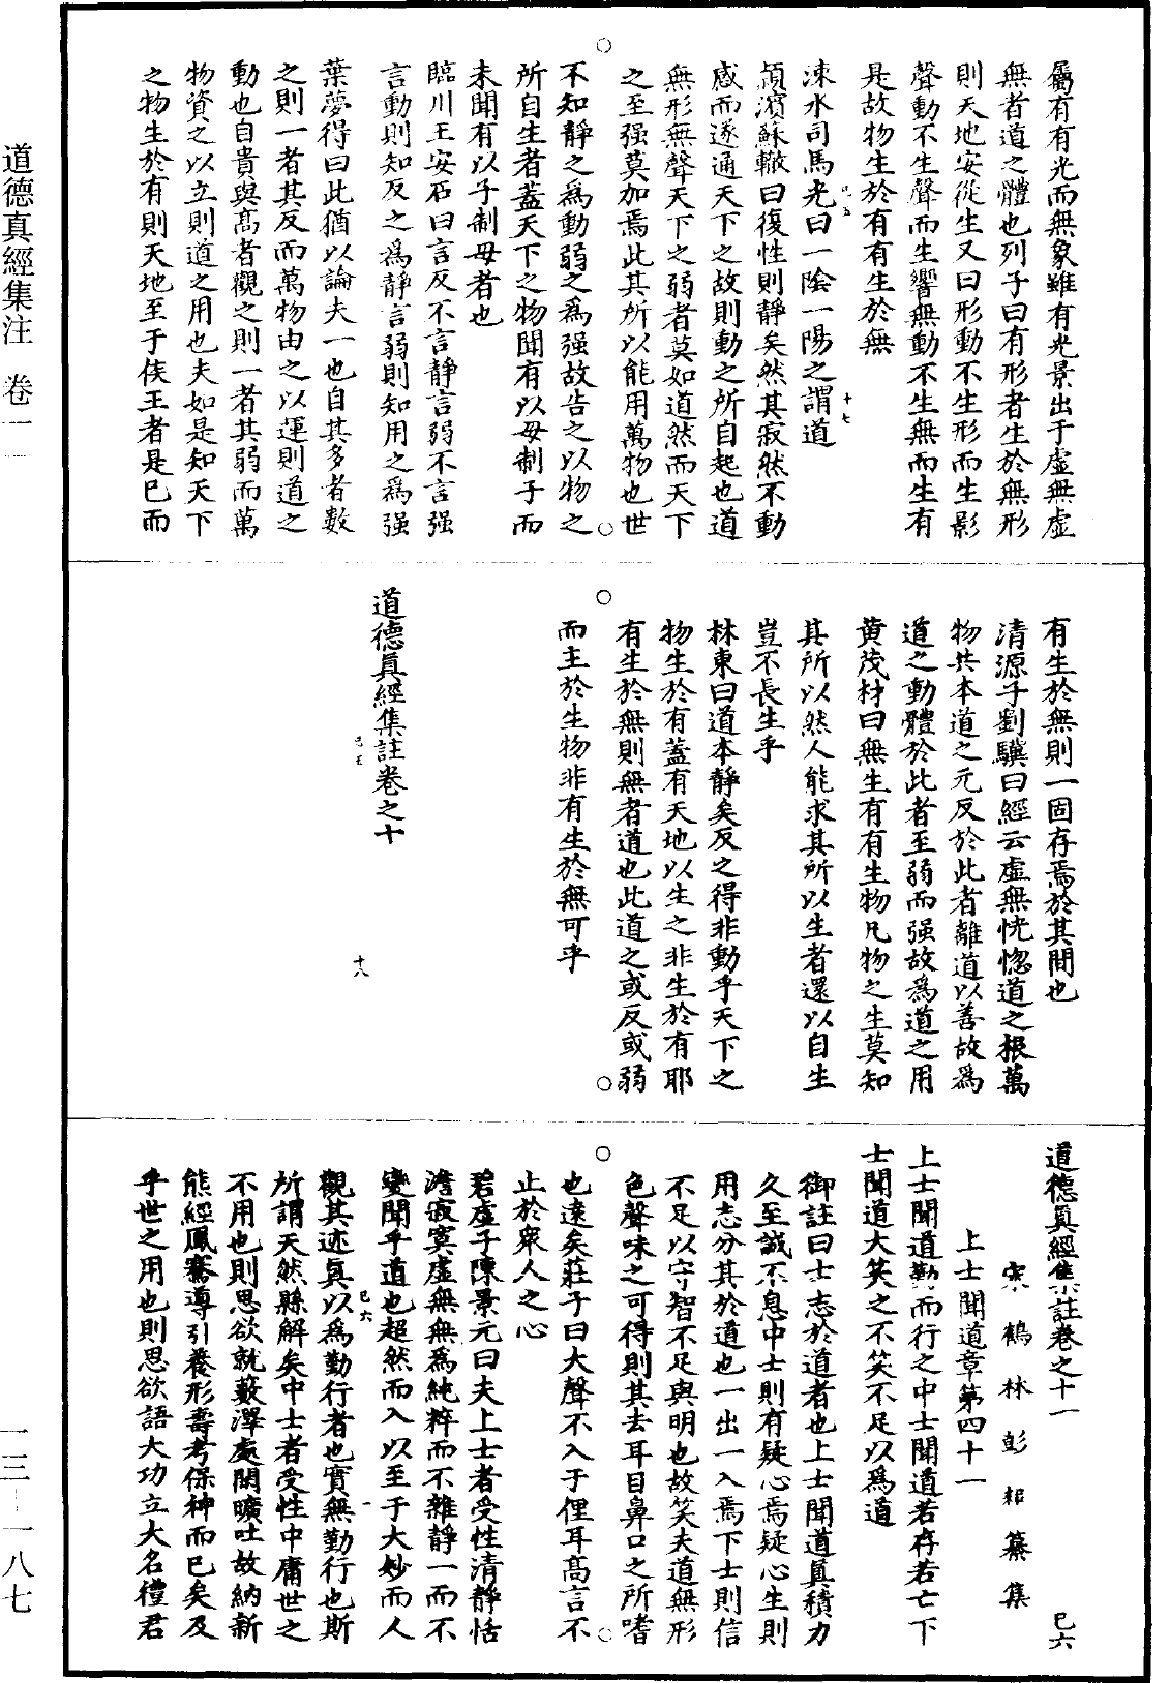 屬有有光而無象雖有光景出于虛無虛
無者道之體也列子曰有形者生於無形
則天地安從生又曰形動不生形而生影
聲動不生聲而生響無動不生無而生有
是故物生於有有生於無
涑水司馬光曰一陰一陽之謂道
潁濱蘇轍曰復性則靜矣然其寂然不動
感而遂通天下之故則動之所自起也道
無形無聲天下之弱者莫如道然而天下
之至强莫加焉此其所以能用萬物也世
不知靜之爲動弱之爲强故告之以物之
所自生者蓋天下之物聞有以母制子而
未聞有以子制母者也
臨川王安石曰言反不言靜言弱不言强
言動則知反之爲靜言弱則知用之爲强
葉夢得曰此猶以論夫一也自其多者數
之則一者其反而萬物由之以運則道之
動也自貴與高者觀之則一者其弱而萬
物資之以立則道之用也夫如是知天下
之物生於有則天地至于侯王者是已而
十七
有生於無則一固存焉於其間也
清源子劉驥曰經云虛無恍惚道之根萬
物共本道之元反於此者離道以善故爲
道之動體於此者至弱而强故爲道之用
黄茂材曰無生有有生物凡物之生莫知
其所以然人能求其所以生者還以自生
豈不長生乎
林東曰道本靜矣反之得非動乎天下之
物生於有蓋有天地以生之非生於有耶
有生於無則無者道也此道之或反或弱
而主於生物非有生於無可乎
道德真經集註卷之十
十八
道德真經集註卷之十一 已六
宋鶴林彭耜纂集
上士聞道章第四十一
上士聞道勤而行之中士聞道若存若亡下
士聞道大笑之不笑不足以爲道
御註曰士志於道者也上士聞道真積力
久至誠不息中士則有疑心焉疑心生則
用志分其於道也一出一入焉下士則信
不足以守智不足與明也故笑夫道無形
色聲味之可得則其去耳目鼻口之所嗜
也遠矣莊子曰大聲不入于俚耳高言不
止於衆人之心
碧虛子陳景元曰夫上士者受性清靜恬
澹寂寞虛無無爲純粹而不雜靜一而不
變聞乎道也超然而入以至于大妙而人
觀其迹真以爲勤行者也實無勤行也斯
所謂天然縣解矣中士者受性中庸世之
不用也則思欲就藪澤處閒曠吐故納新
熊經鳳騫導引養形壽考保神而已矣及
乎世之用也則思欲語大功立大名禮君
已六
一
道德真經集注 卷一一
一三-一八七